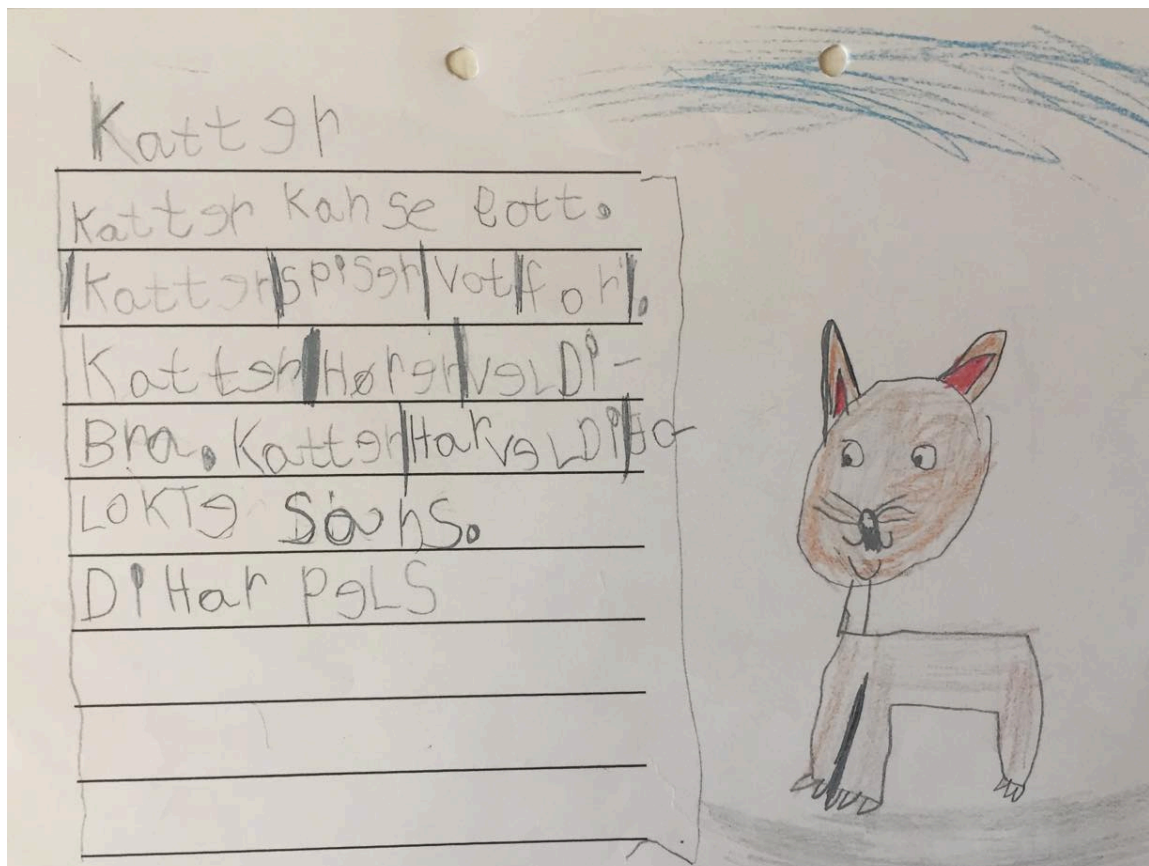 Katter
Katter Kan se gott.
Katter spiser vot for.
Katter Hører veLDi-
Bra. Katter Har veLDi
LOKTe Sans.
Di Har PeLS